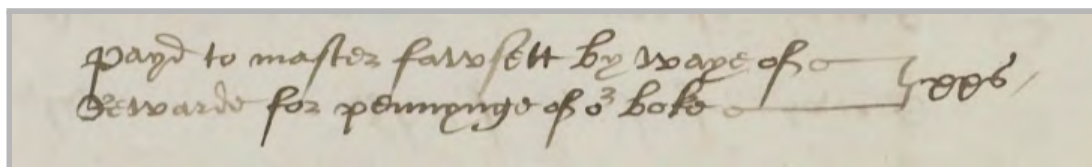 payd to master fawsett by waye of xxs
Rewarde for pennynge of or boke